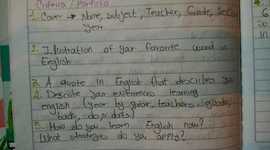 Criteria / Portfolio
1. Cover → Name, subject, Teacher, Grade, Section
year
2. Illustration of your favorite word in
English
3. A quote in English that describes you
4. Describe your experiences learning
english (year by year, teachers,
bad, do's
5. How do you learn English now?
What strategies do you apply?